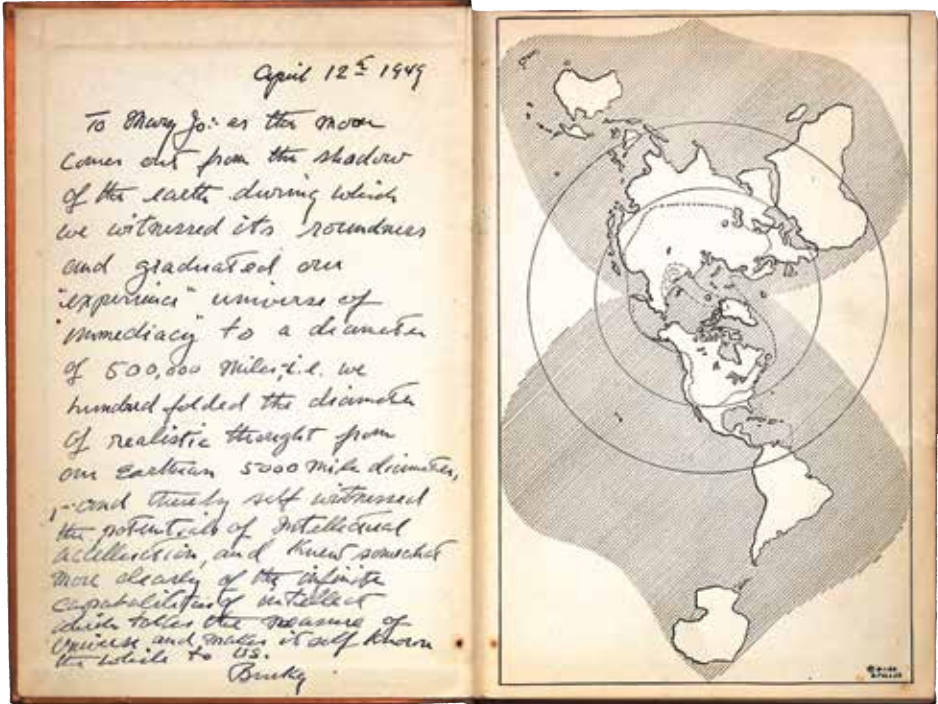 April 12th 1949
To Mary Jo: as the moon
comes out from the shadow
of the earth during which
we witnessed its roundness
and graduated our
"experience" universe of
"immediacy" to a diameter
of 500,000 miles, i.e. we
hundred folded the diameter
of realistic thought from
our Earthian 5000 mile diameter,
,-and thereby self witnessed
the potentials of intellectual
acceleration, and knew somewhat
more clearly of the infinite
capabilities of intellect
which takes the measure of
Universe and makes itself known
the while to us.
Bucky